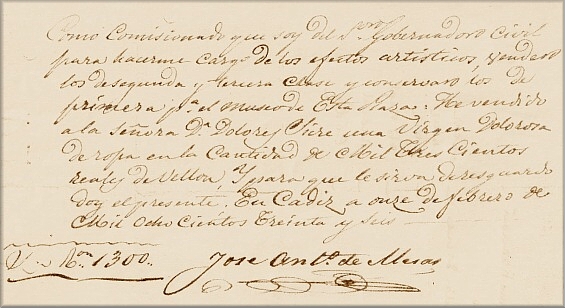 Como Comisionado que soy del Sor Gobernador Civil
para hacerme Cargo de los efectos artisticos, vender
los de segunda y tercera clase y conservar los de
primera pa. el museo de Esta Plaza: He vendido
a la Señora Da. Dolores una Virgen Dolorosa
de ropa en la Cantidad de Mil Tres Cientos
reales de Vellon, Y para que le sirva de resguardo
doy el presente. En Cadiz a onze de febrero de
Mil Ocho Cientos Treinta y Seis
Son Rs. on. 1300..
Jose Anto. de Mesas